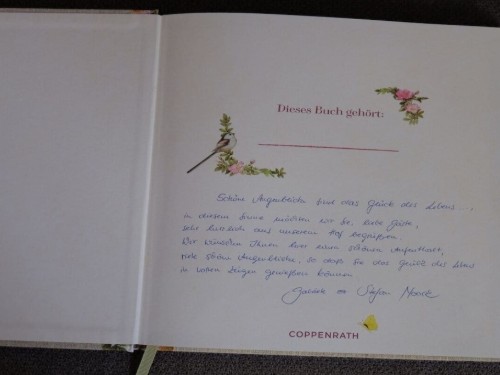 Dieses Buch gehört:
Schöne Augenblicke sind das Glück des Lebens...,
in diesem Sinne möchten wir Sie, liebe Gäste,
sehr herzlich auf unserem Hof begrüßen.
Wir wünschen Ihnen hier einen schönen Aufenthalt,
viele schöne Augenblicke, so dass Sie das Glück des Lebens
in vollen Zügen genießen können
Stefan
COPPENRATH